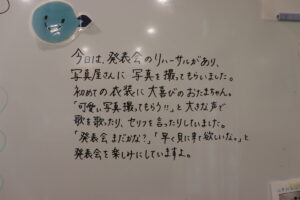 今日は、発表会のリハーサルがあり、
写真屋さんに写真を撮ってもらいました。
初めての衣装に大喜びのおたまちゃん。
「可愛い写真撮ってもらう!!」と大きな声で
歌を歌ったり、セリフを言ったりしていました。
「発表会まだかな?」「早く見に来て欲しいな。」と
発表会を楽しみにしていますよ。